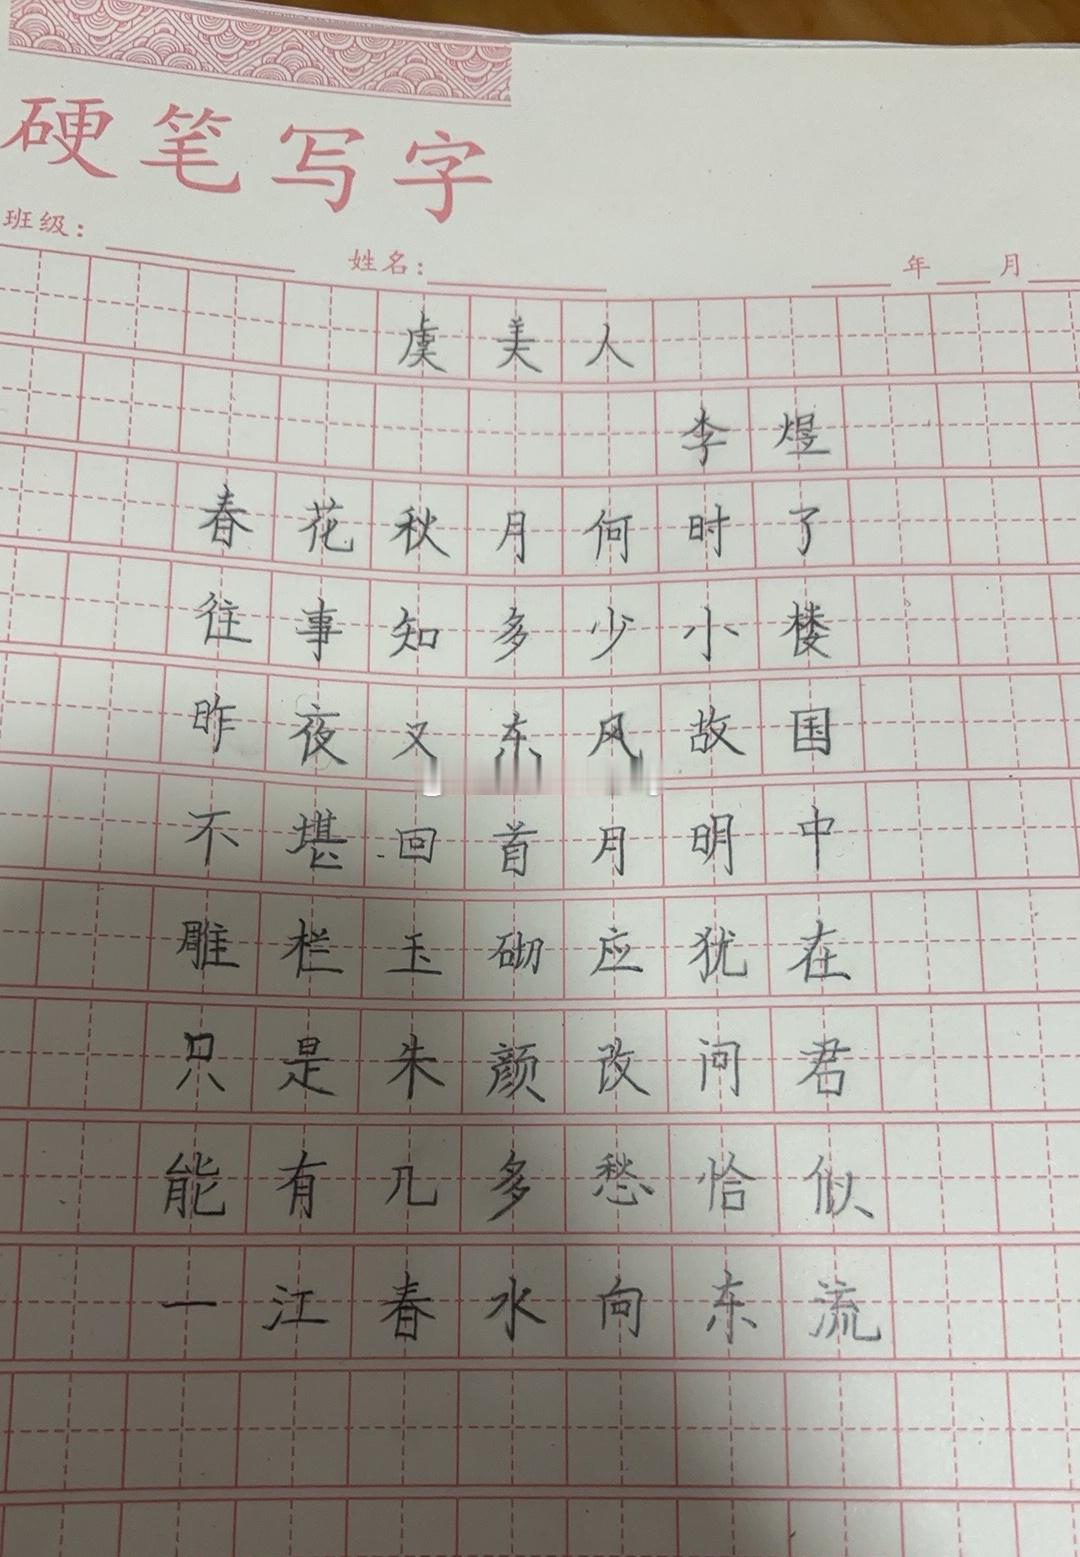 硬笔写字
班级：
姓名： 年 月
虞美人
李煜
春花秋月何时了
往事知多少小楼
昨夜又东风故国
不堪回首月明中
雕栏玉砌应犹在
只是朱颜改问君
能有几多愁恰似
一江春水向东流